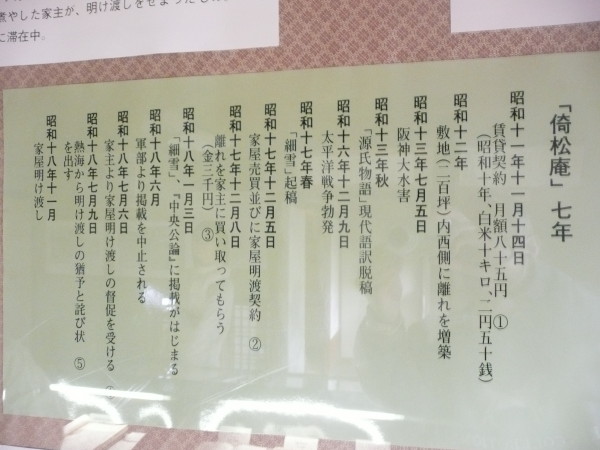 煮やした家主が、明け渡しをせまった
に滞在中。
「倚松庵」七年
昭和十一年十一月十四日
賃貸契約 月額八十五円 ①
(昭和十年、白米十キロ、二円五十銭)
昭和十二年
敷地(二百坪)内西側に離れを増築
昭和十三年七月五日
阪神大水害
昭和十三年秋
「源氏物語」現代語訳脱稿
昭和十六年十二月九日
太平洋戦争勃発
昭和十七年春
「細雪」起稿
昭和十七年十二月五日
家屋売買並びに家屋明渡契約 ②
昭和十七年十二月八日
離れを家主に買い取ってもらう
(金三千円) ③
昭和十八年一月三日
「細雪」、『中央公論』に掲載がはじまる
昭和十八年六月
軍部より掲載を中止される
昭和十八年七月六日
家主より家屋明け渡しの督促を受ける
昭和十八年七月九日
熱海から明け渡しの猶予と詫び状
を出す ⑤
昭和十八年十一月
家屋明け渡し